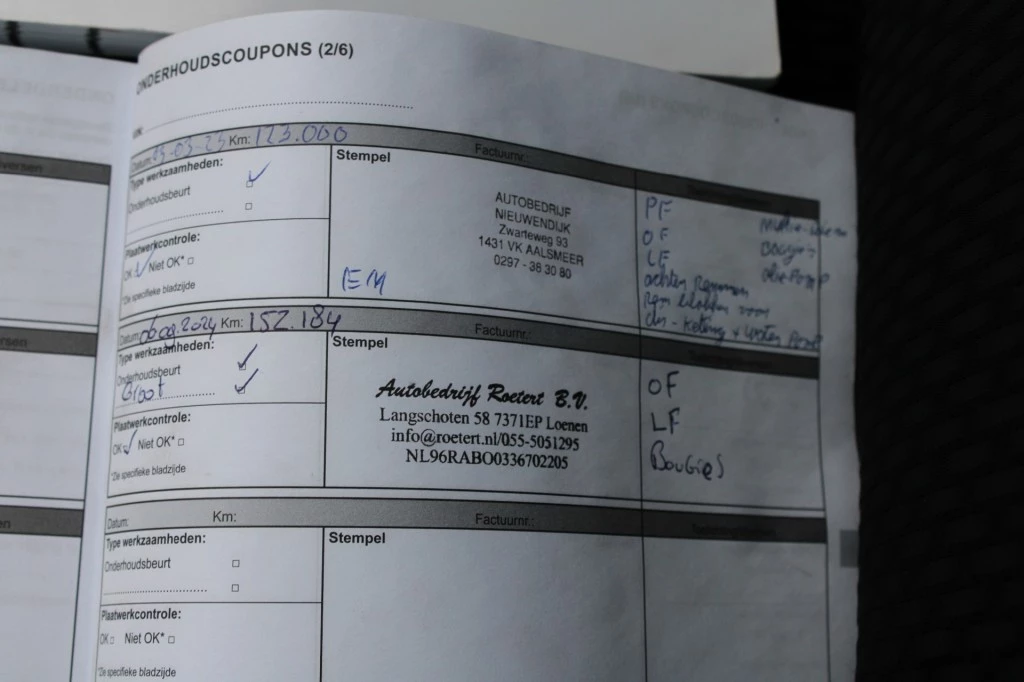 ONDERHOUDSCOUPONS (2/6)
VIN:
Datum: 23-03-23 Km: 123.000 Factuurnr.:
Type werkzaamheden:
Onderhoudsbeurt
Plaatwerkcontrole:
OK Niet OK*
*De specifieke bladzijde
Stempel
AUTOBEDRIJF
NIEUWENDIJK
Zwarteweg 93
1431 VK AALSMEER
0297 - 38 30 80
EM
PF
OF
LF
achter Remmen
Rem blokken voor
dis - Keting + water Pomp
Multi-riem
Bougies
olie Pomp
Datum: 06 09.2024 Km: 152.184 Factuurnr.:
Type werkzaamheden:
Onderhoudsbeurt
Groot
Plaatwerkcontrole:
OK Niet OK*
*De specifieke bladzijde
Stempel
Autobedrijf Roetert B.V.
Langschoten 58 7371EP Loenen
info@roetert.nl/055-5051295
NL96RABO0336702205
OF
LF
BouGies
Datum: Km: Factuurnr.:
Type werkzaamheden:
Onderhoudsbeurt
Plaatwerkcontrole:
OK Niet OK*
*De specifieke bladzijde
Stempel